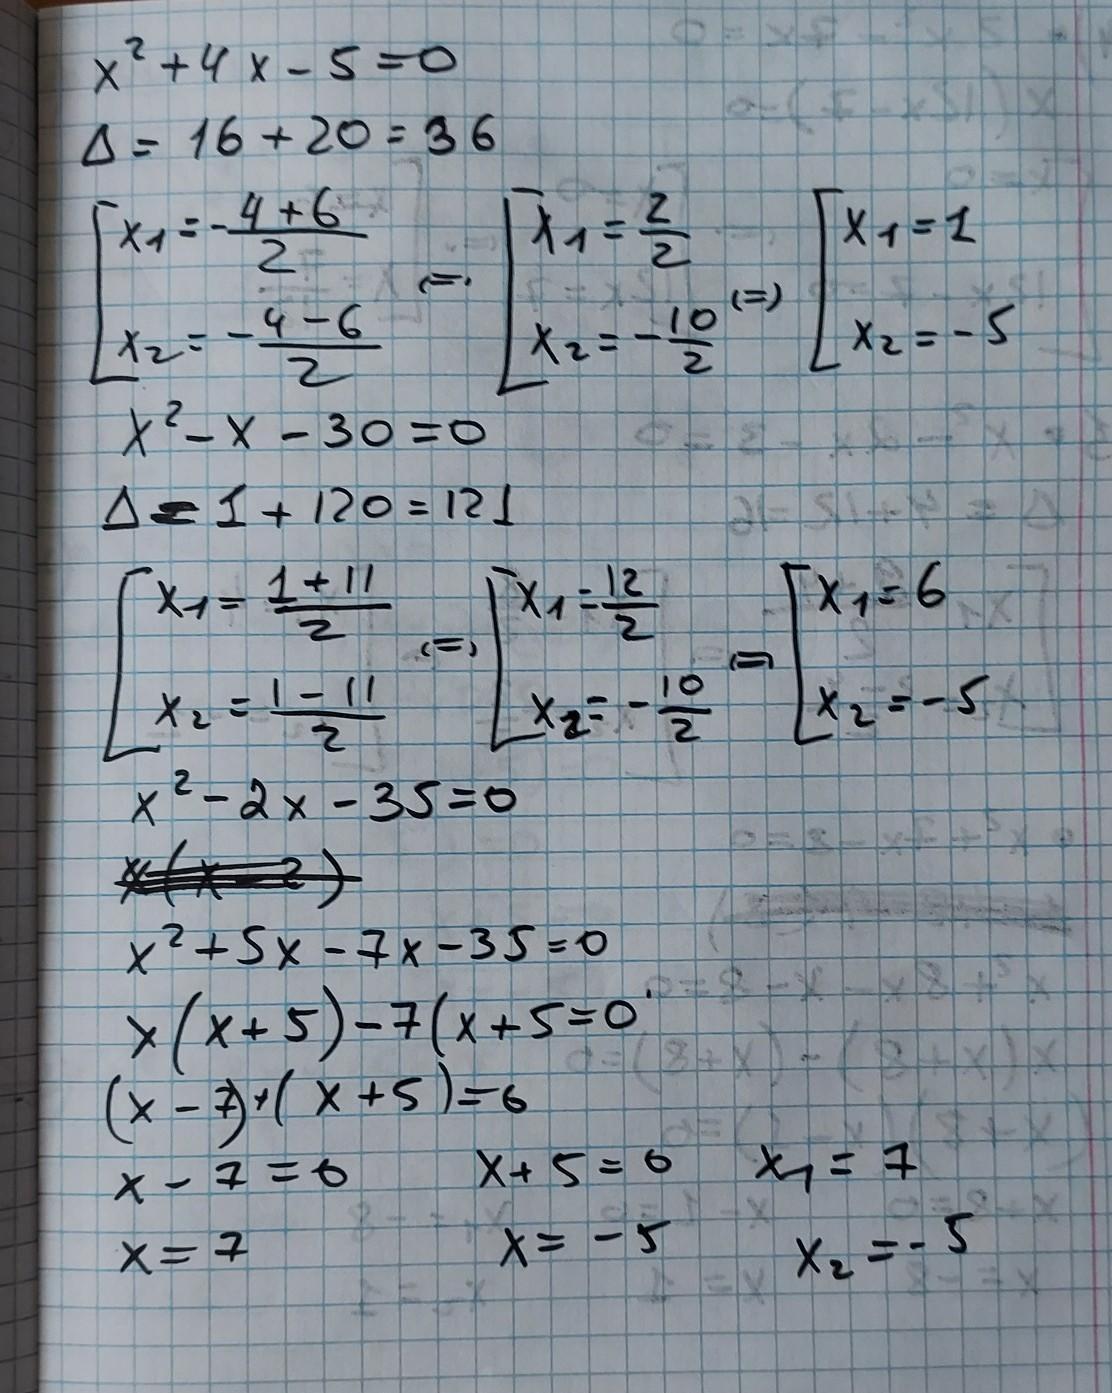 x² + 4x - 5 = 0
Δ = 16 + 20 = 36
[ x₁ = -4+6/2 (=) [ x₁ = 2/2 (=) [ x₁ = 1
x₂ = -4-6/2 x₂ = -10/2 x₂ = -5
x² - x - 30 = 0
Δ = 1 + 120 = 121
[ x₁ = 1+11/2 (=) [ x₁ = 12/2 (=) [ x₁ = 6
x₂ = 1-11/2 x₂ = -10/2 x₂ = -5
x² - 2x - 35 = 0
x² + 5x - 7x - 35 = 0
x(x+5) - 7(x+5=0
(x-7)·(x+5)=0
x - 7 = 0 x + 5 = 0 x₁ = 7
x = 7 x = -5 x₂ = -5